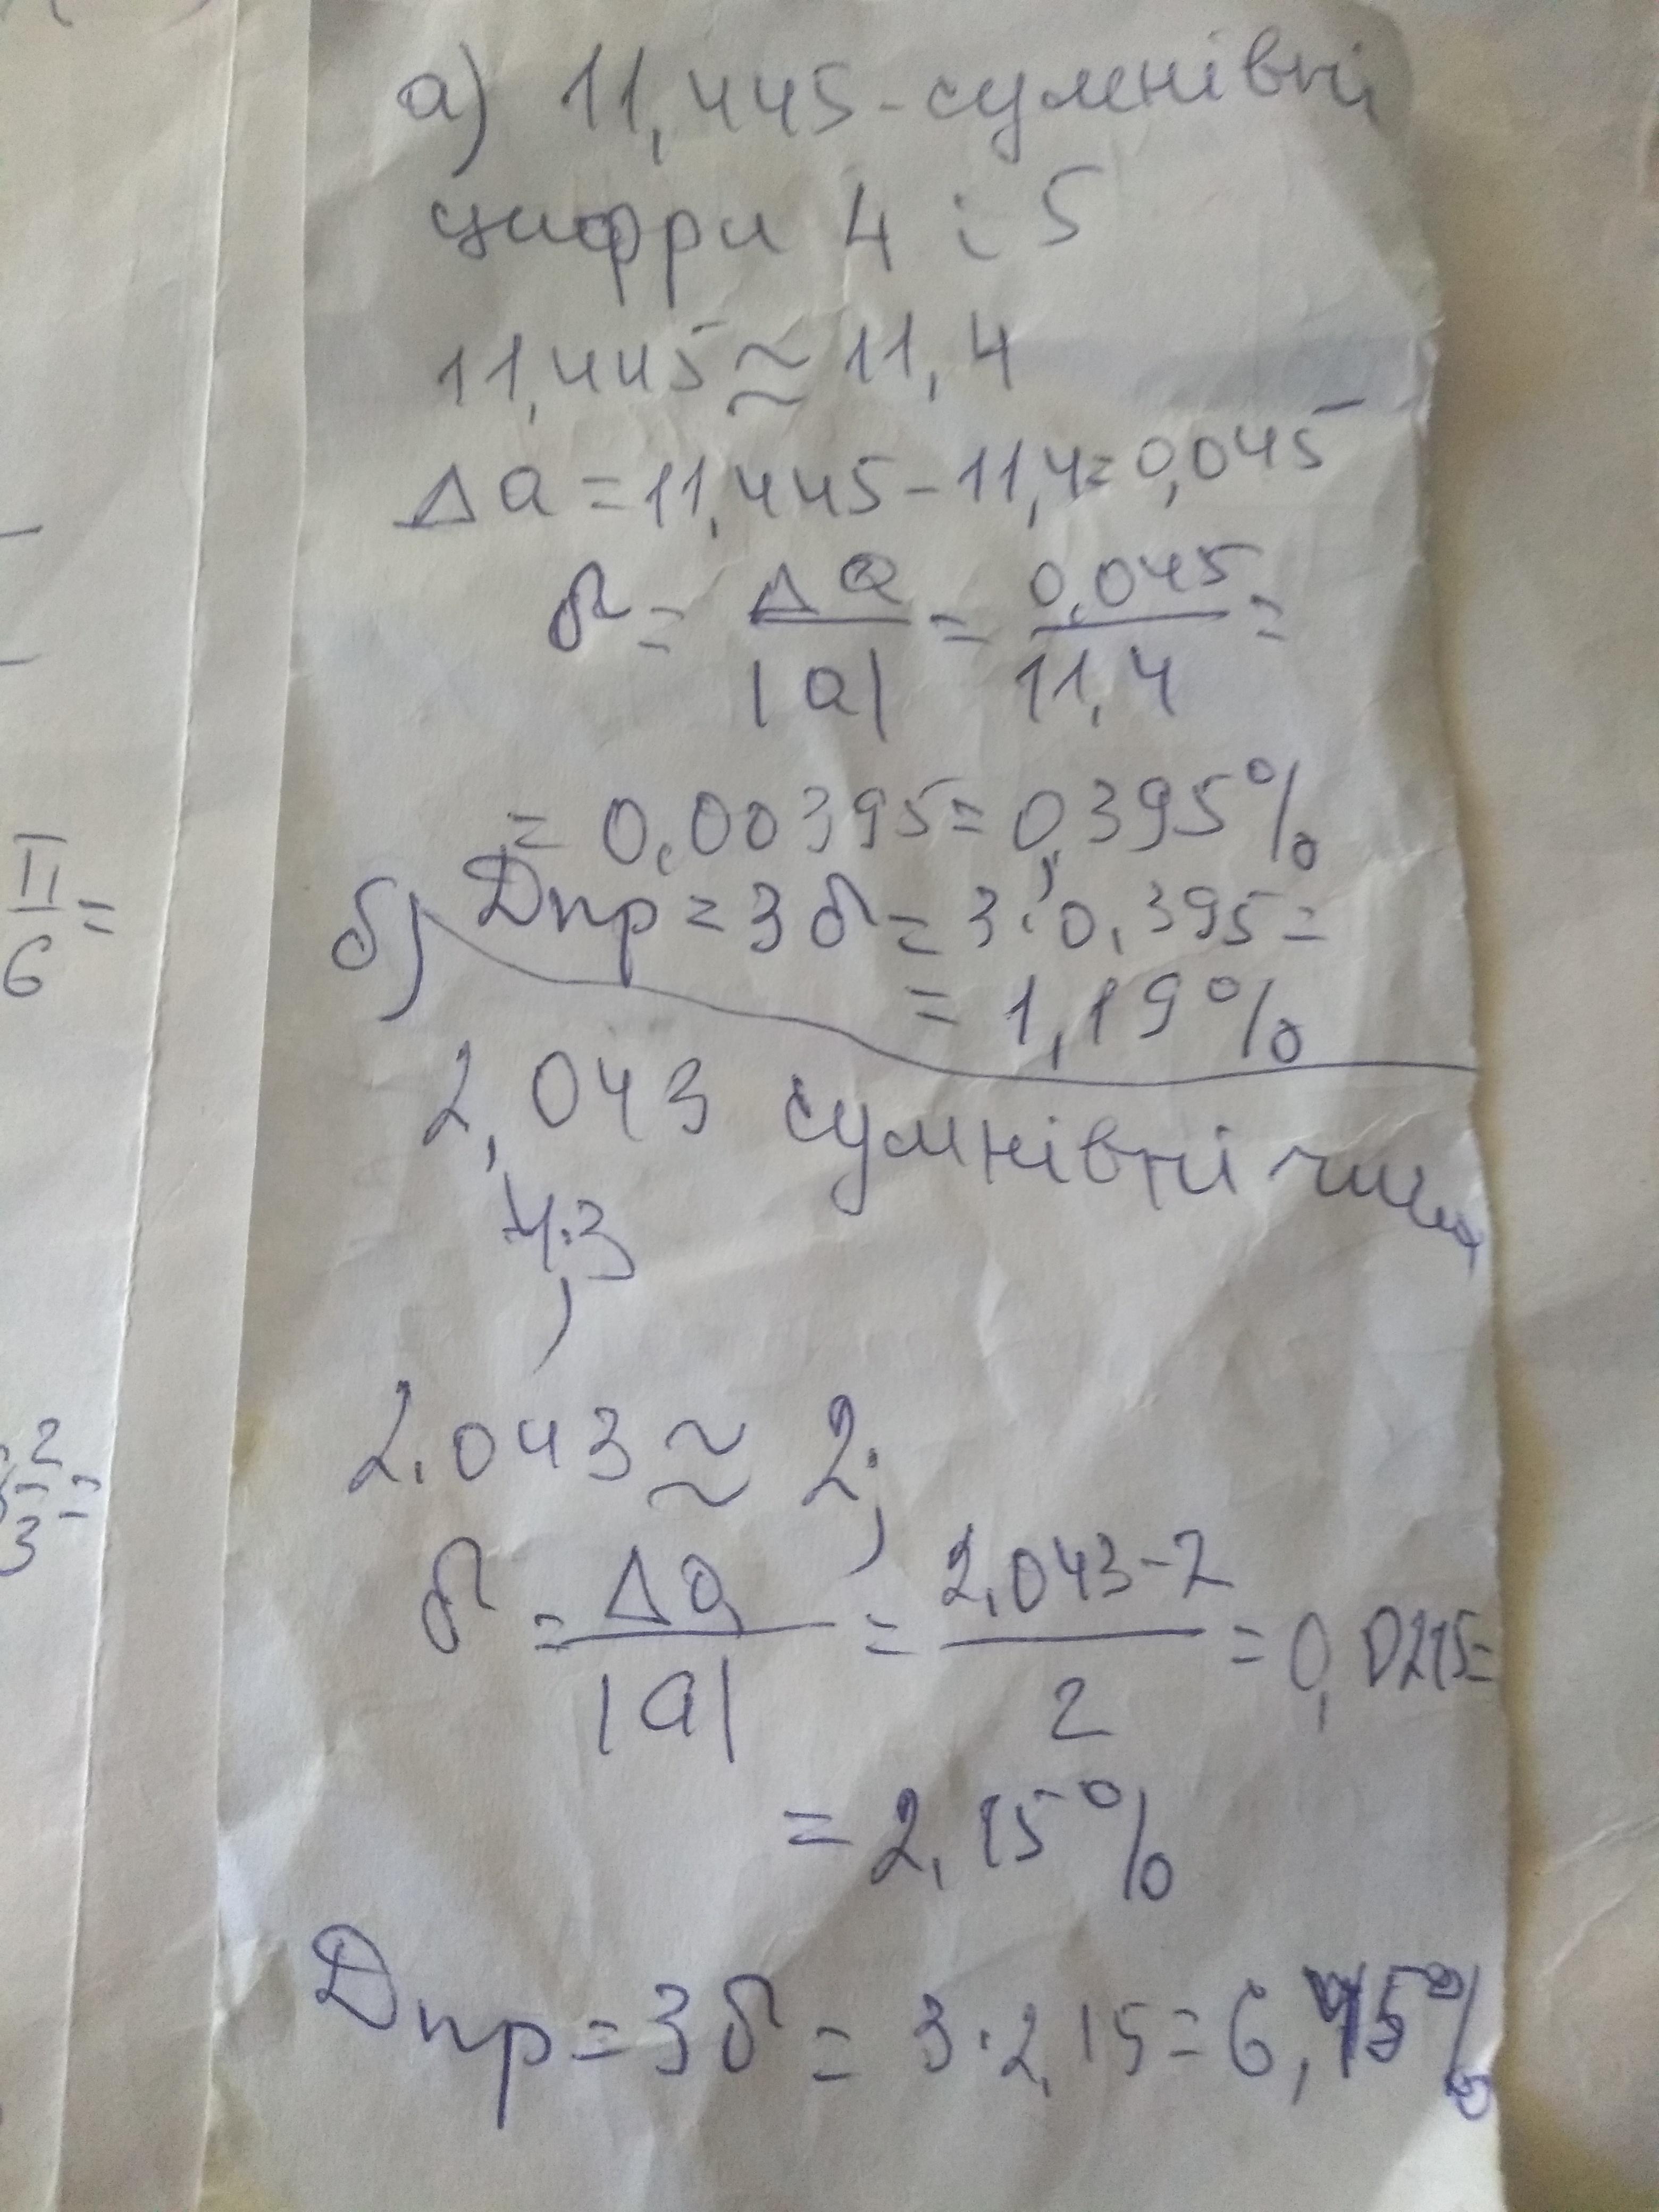 а) 11,445 - сумнівні
цифри 4 і 5
11,445 ≈ 11,4
Δa = 11,445 - 11,4 = 0,045
δ = Δa / |a| = 0,045 / 11,4 =
= 0,00395 = 0,395%
б) Dпр = 3δ = 3·0,395 =
= 1,19%
2,043 сумнівні
4;3
2,043 ≈ 2;
δ = Δa / |a| = 2,043 - 2 / 2 = 0,0215 =
= 2,15%
Dпр = 3δ = 3·2,15 = 6,45%
π / 6 =
2 / 3 =